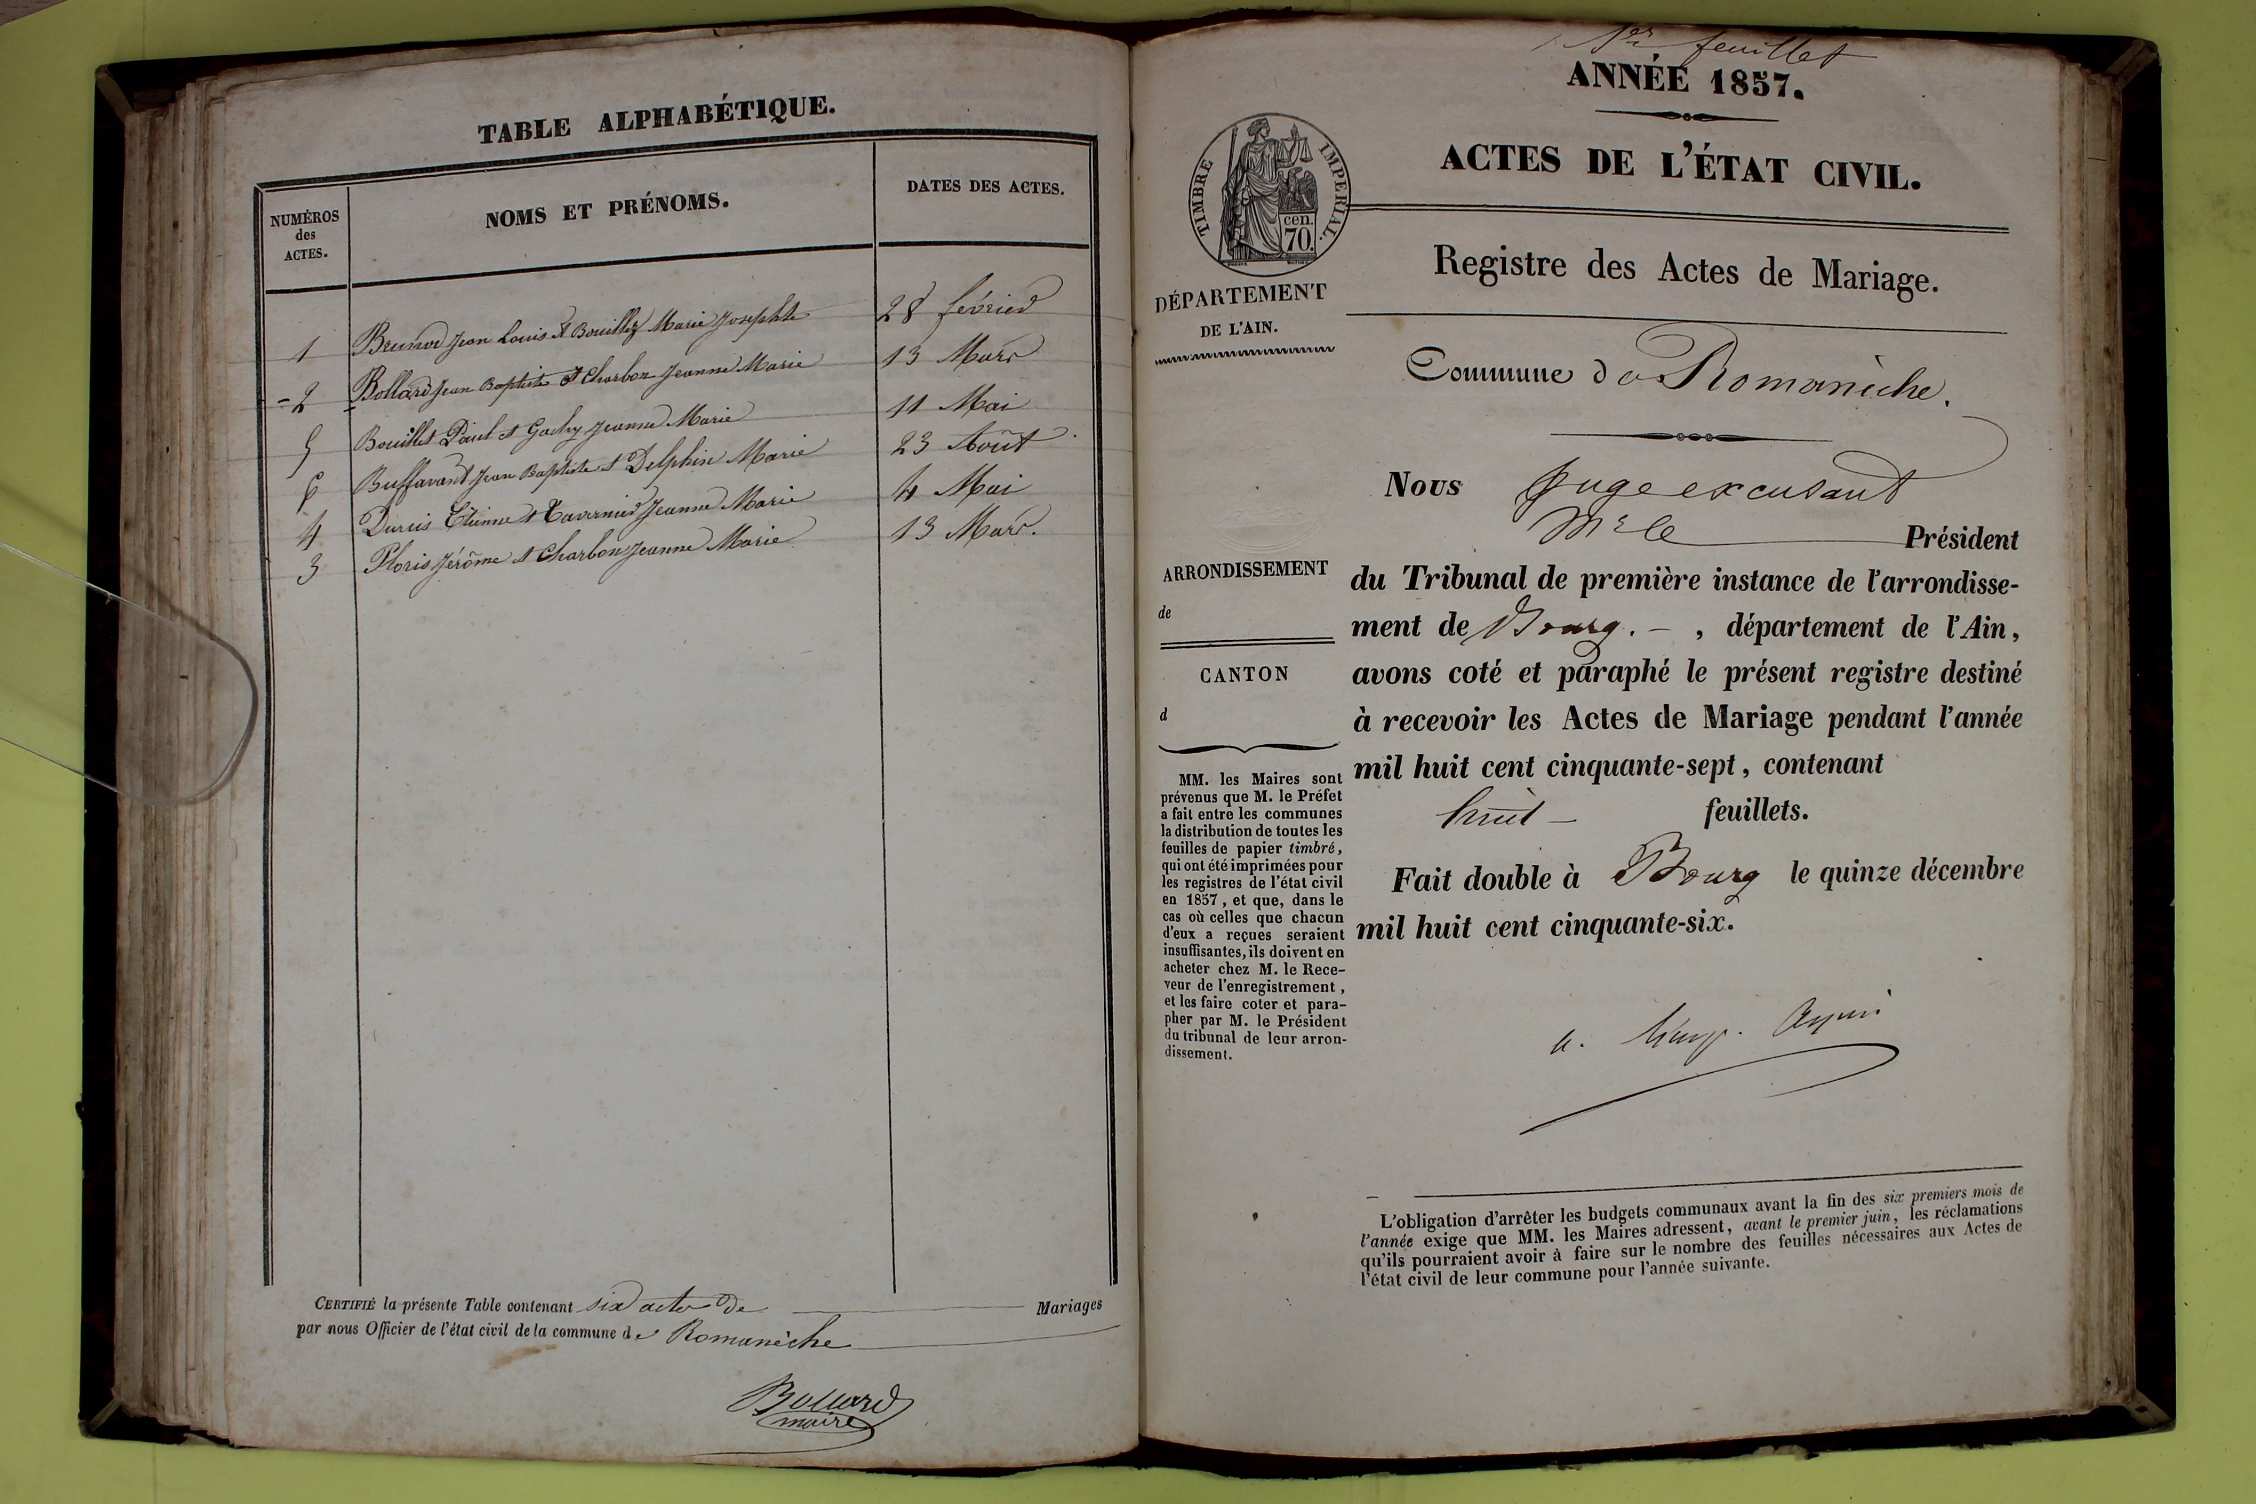 TABLE ALPHABÉTIQUE.
NUMÉROS
des
ACTES.
NOMS ET PRÉNOMS.
DATES DES ACTES.
1 Jean Louis et Bouillez Marie Josephte 28 février
2 Bollard Jean Baptiste et Charbon Jeanne Marie 13 Mars
5 Bouillet Paul et Jeanne Marie 11 Mai
6 Buffavant Jean Baptiste et Delphin Marie 23 Août
4 Etienne et Tavernier Jeanne Marie 4 Mai
3 Jérôme et Charbon Jeanne Marie 13 Mars.
CERTIFIÉ la présente Table contenant six actes de Mariages
par nous Officier de l'état civil de la commune de Romanèche
Bollard
maire
1er feuillet
ANNÉE 1857.
ACTES DE L'ÉTAT CIVIL.
TIMBRE IMPERIAL.
cen.
70.
DÉPARTEMENT
DE L'AIN.
Registre des Actes de Mariage.
Commune de Romanèche.
Nous Juge excusant
Mr le Président
du Tribunal de première instance de l'arrondisse-
ment de Bourg. , département de l'Ain,
avons coté et paraphé le présent registre destiné
à recevoir les Actes de Mariage pendant l'année
mil huit cent cinquante-sept, contenant
huit feuillets.
Fait double à Bourg le quinze décembre
mil huit cent cinquante-six.
ARRONDISSEMENT
de
CANTON
d
MM. les Maires sont
prévenus que M. le Préfet
a fait entre les communes
la distribution de toutes les
feuilles de papier timbré,
qui ont été imprimées pour
les registres de l'état civil
en 1857, et que, dans le
cas où celles que chacun
d'eux a reçues seraient
insuffisantes, ils doivent en
acheter chez M. le Rece-
veur de l'enregistrement,
et les faire coter et para-
pher par M. le Président
du tribunal de leur arron-
dissement.
L'obligation d'arrêter les budgets communaux avant la fin des six premiers mois de
l'année exige que MM. les Maires adressent, avant le premier juin, les réclamations
qu'ils pourraient avoir à faire sur le nombre des feuilles nécessaires aux Actes de
l'état civil de leur commune pour l'année suivante.